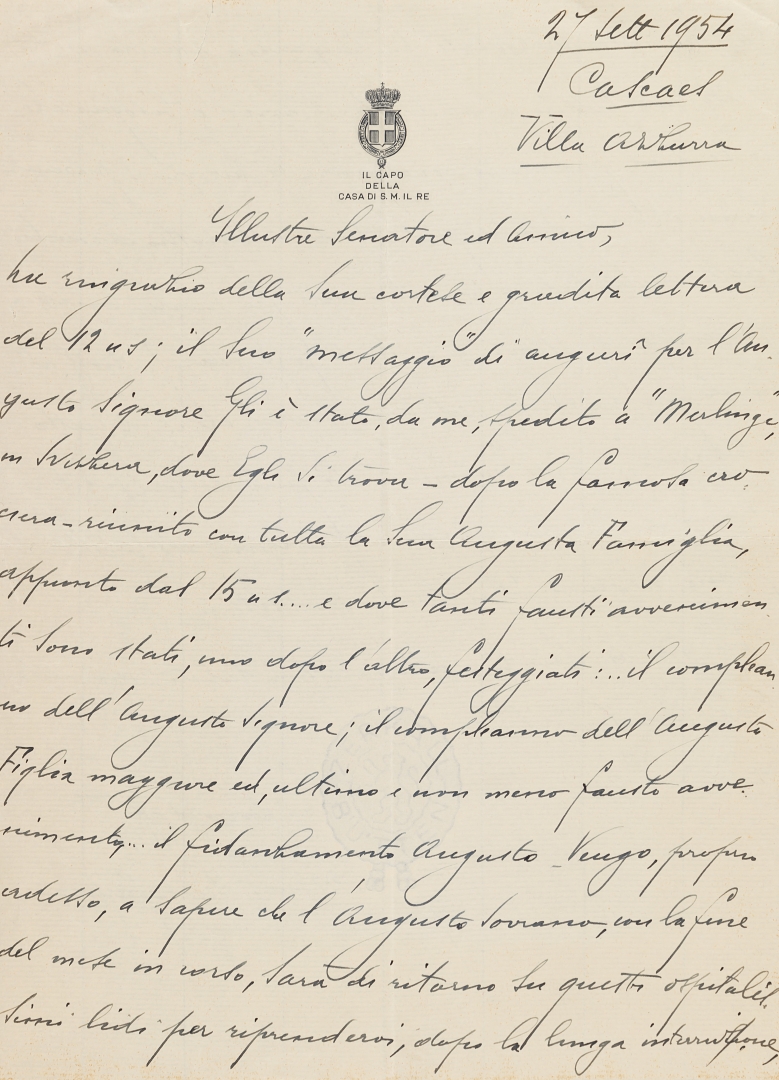 27 Sett 1954
Cascaes
Villa Azzurra
IL CAPO
DELLA
CASA DI S. M. IL RE
Illustre Senatore ed Amico,
La ringrazio della Sua cortese e gradita lettera
del 12 u s; il Suo "messaggio" di auguri per l'Au-
gusto Signore Gli è stato, da me, spedito a "Merlinge",
in Svizzera, dove Egli si trova - dopo la famosa cro-
ciera - riunito con tutta la Sua Augusta Famiglia,
appunto dal 15 u s.... e dove tanti fausti avvenimen-
ti sono stati, uno dopo l'altro, festeggiati:.. il complean
no dell'Augusto Signore; il compleanno dell'Augusta
Figlia maggiore ed, ultimo e non meno fausto avve-
nimento,... il fidanzamento Augusto - Vengo, proprio
adesso, a sapere che l'Augusto Sovrano, con la fine
del mese in corso, sarà di ritorno su questi ospitalis-
simi lidi per riprendervi, dopo la lunga interruzione,